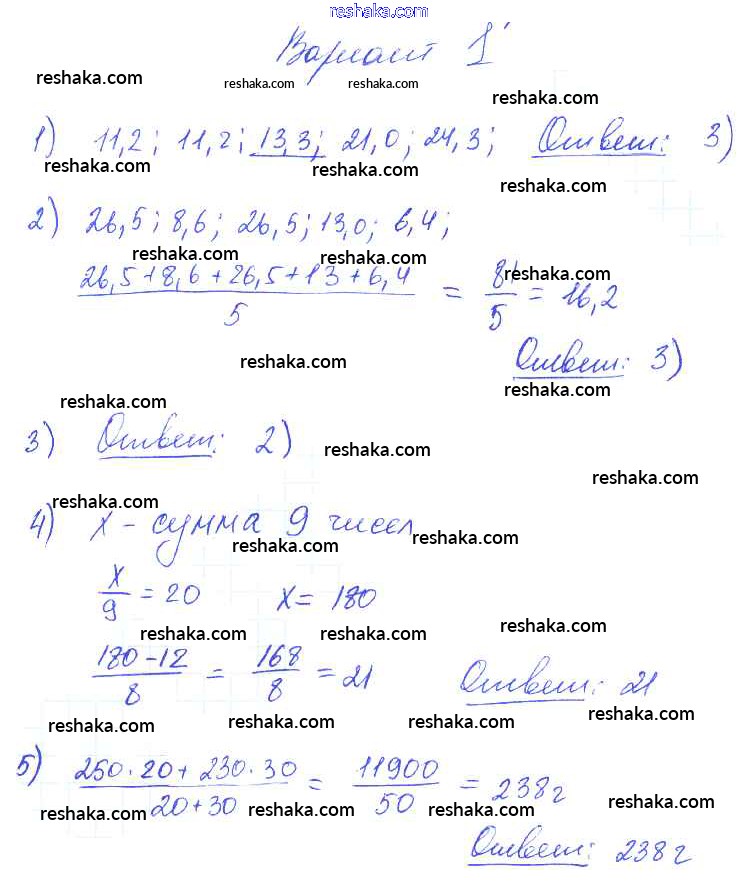 reshaka.com
Вариант 1
reshaka.com reshaka.com reshaka.com reshaka.com
1) 11,2; 11,2; 13,3; 21,0; 24,3; Ответ: 3)
reshaka.com reshaka.com reshaka.com reshaka.com
2) 26,5; 8,6; 26,5; 13,0; 6,4;
reshaka.com reshaka.com
(26,5+8,6+26,5+13+6,4)/5 = 81/5 = 16,2
reshaka.com reshaka.com
Ответ: 3)
reshaka.com reshaka.com reshaka.com
3) Ответ: 2)
reshaka.com reshaka.com
reshaka.com
4) x - сумма 9 чисел
reshaka.com reshaka.com
x/9 = 20 x = 180
reshaka.com reshaka.com reshaka.com
(180-12)/8 = 168/8 = 21 Ответ: 21
reshaka.com reshaka.com reshaka.com reshaka.com
5) (250·20+230·30)/(20+30) = 11900/50 = 238г
reshaka.com reshaka.com reshaka.com reshaka.com
Ответ: 238г